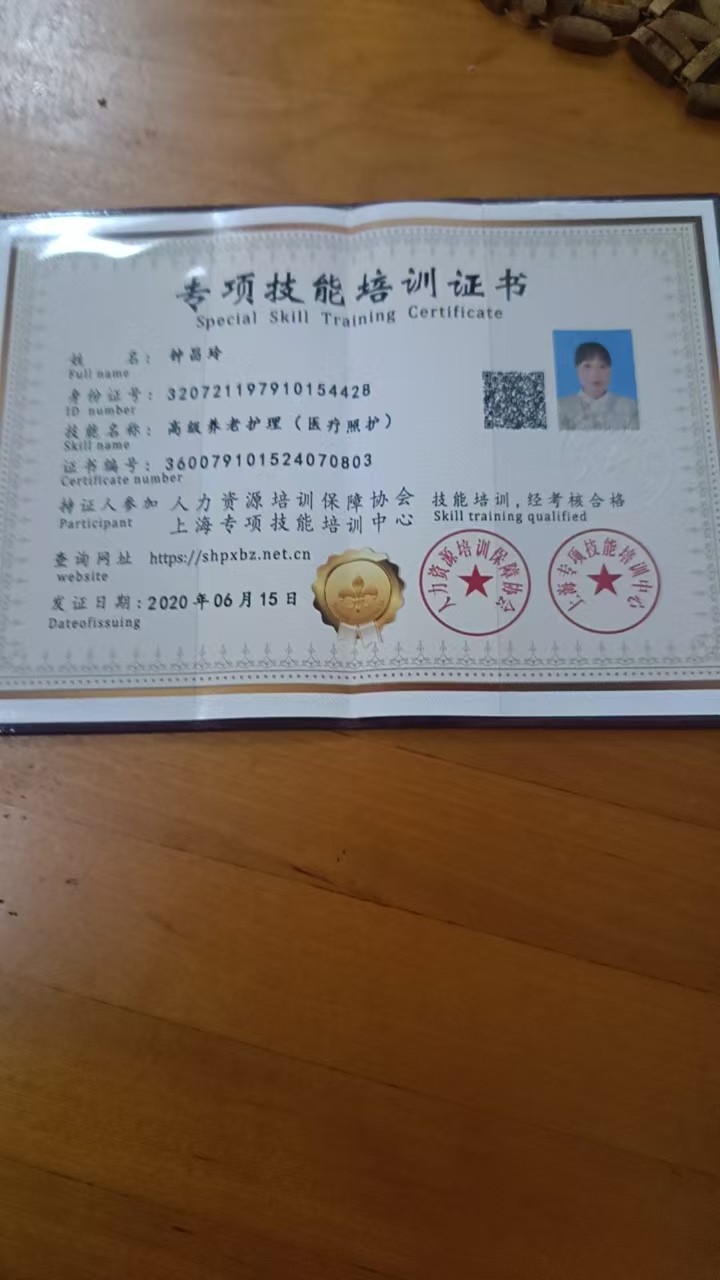 专项技能培训证书
Special Skill Training Certificate
姓 名：钟昌玲
Full name
身份证号：320721197910154428
ID number
技能名称：高级养老护理（医疗照护）
Skill name
证书编号：360079101524070803
Certificate number
持证人参加 人力资源培训保障协会 技能培训,经考核合格
Participant 上海专项技能培训中心 Skill training qualified
查询网址 https://shpxbz.net.cn
website
发证日期:2020年06月15日
Dateofissuing
人力资源培训保障协会
上海专项技能培训中心